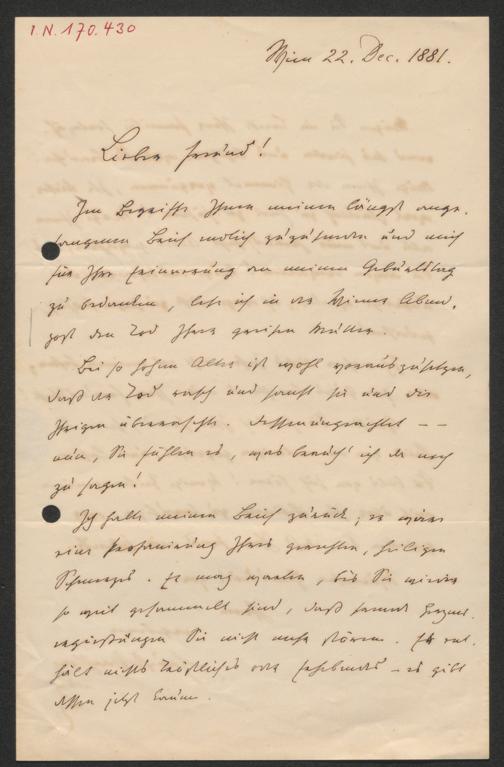 I.N. 170.430
Wien 22. Dec. 1881.
Lieber Freund!
Im Begriffe Ihnen meinen längst ange-
fangenen Brief endlich zuzusenden und mich
für Ihre Erinnerung an meinen Geburtstag
zu bedanken, lese ich in der Wiener Abend-
post den Tod Ihrer greisen Mutter.
Bei so hohem Alter ist wohl vorauszusetzen,
daß der Tod rasch und sanft sie und die
Ihrigen überraschte. Dessenungeachtet – –
nun, Sie fühlen es, was brauch' ich da noch
zu sagen!
Ich halte meinen Brief zurück, es wäre
eine Profanierung Ihres gerechten, heiligen
Schmerzes. Er mag warten, bis Sie wieder
so weit gesammelt sind, daß fremde Herzens-
ergießungen Sie nicht mehr stören. Er ent-
hält nichts Tröstliches oder – es gibt
dessen jetzt kaum.